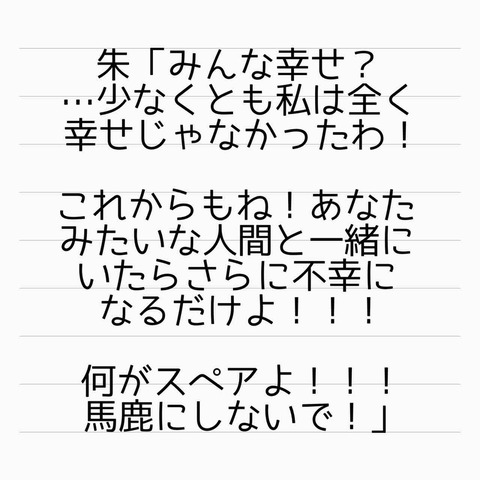 朱「みんな幸せ？
…少なくとも私は全く
幸せじゃなかったわ！
これからもね！あなた
みたいな人間と一緒に
いたらさらに不幸に
なるだけよ！！！
何がスペアよ！！！
馬鹿にしないで！」